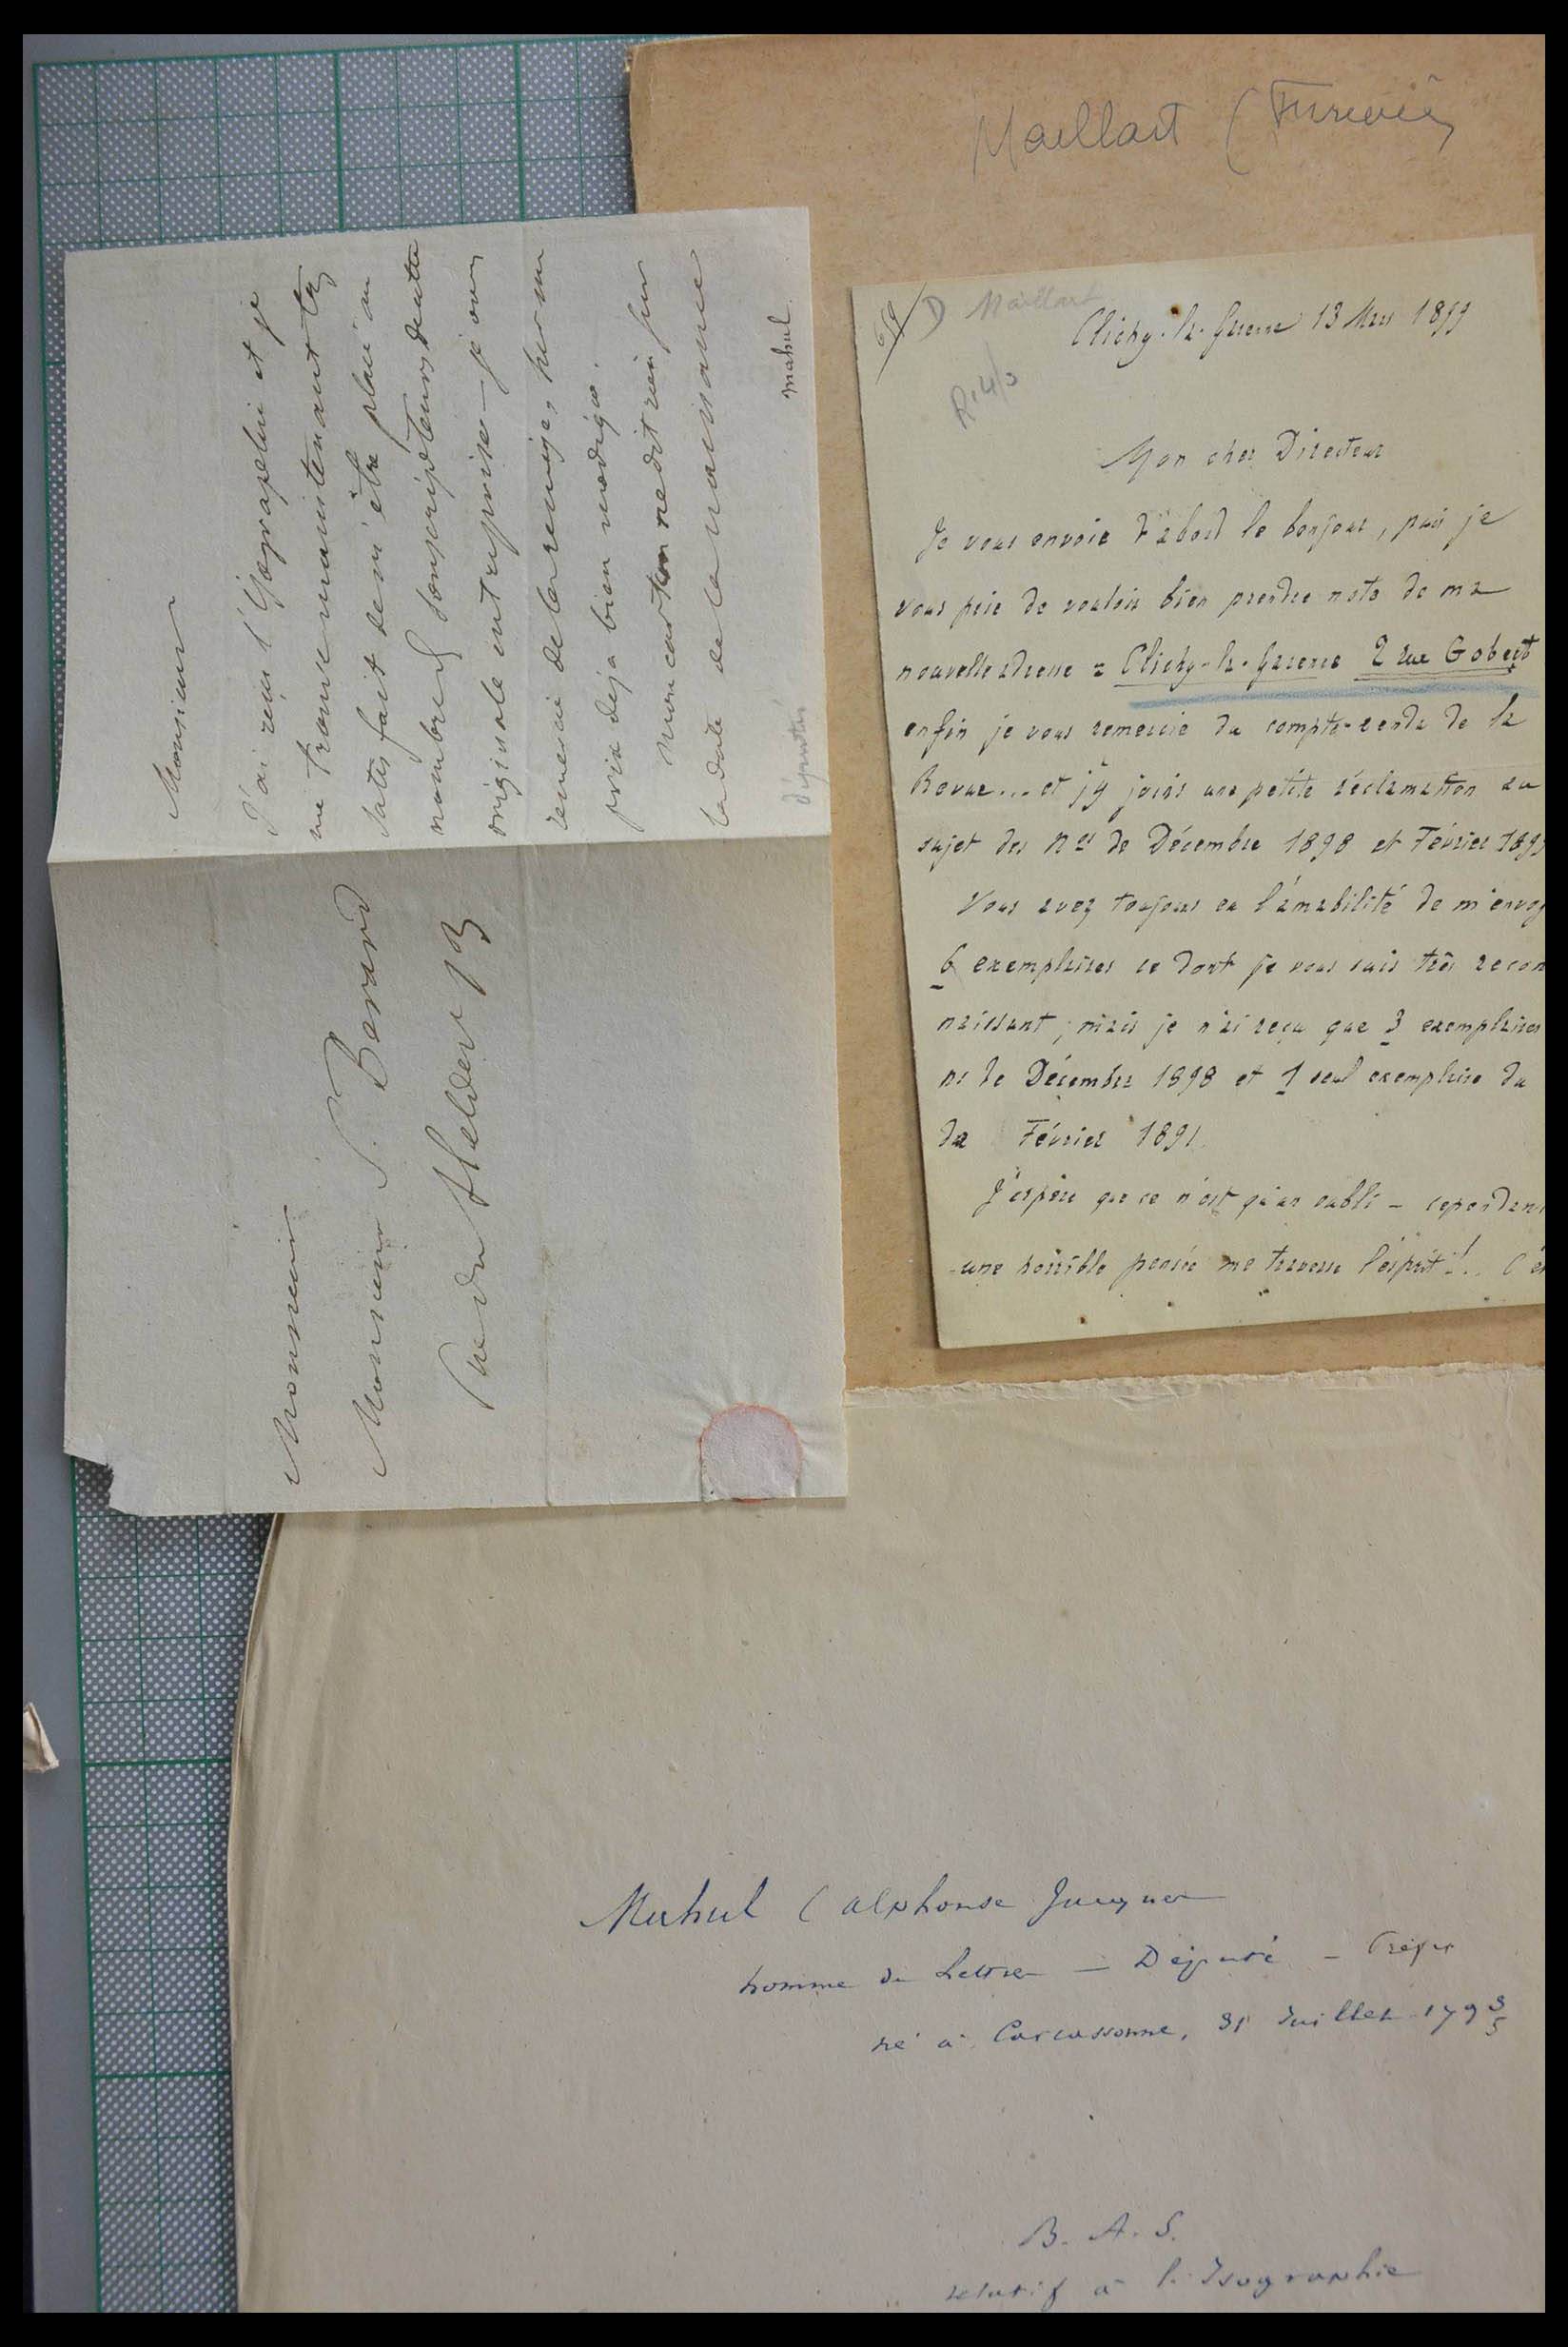 Maillart (
Monsieur
J'ai reçu l' et je
me trouve maintenant très
satisfait de m'être placé au
nombre des souscripteurs de cette
originale entreprise — je vous
remercie de la remise, sur un
prix déjà bien modique.
Mon carton ne dit rien sur
la date de la naissance
mahul.
députés
Monsieur
Monsieur S. Berard
rue du Helder 13
D Maillart
Clichy-la-Garenne 13 Mars 1899
Mon cher Directeur
Je vous envoie d'abord le bonjour, puis je
vous prie de vouloir bien prendre note de ma
nouvelle adresse = Clichy-la-Garenne 2 rue Gobert
enfin je vous remercie du compte-rendu de la
Revue... et j'y joins une petite réclamation au
sujet des Nos de Décembre 1898 et Février 189
Vous avez toujours eu l'amabilité de m'envoy
6 exemplaires ce dont je vous suis très recon
naissant; mais je n'ai reçu que 3 exemplaires
no de Décembre 1898 et 1 seul exemplaire du
de Février 189
J'espère que ce n'est qu'un oubli - cependan
une horrible pensée me traverse l'esprit!.. C'es
Mahul (Alphonse Jacques
homme de Lettres — Député — Préfet
né à Carcassonne, 31 Juillet 1793
5
B. A. S.
relatif à l'Isographie